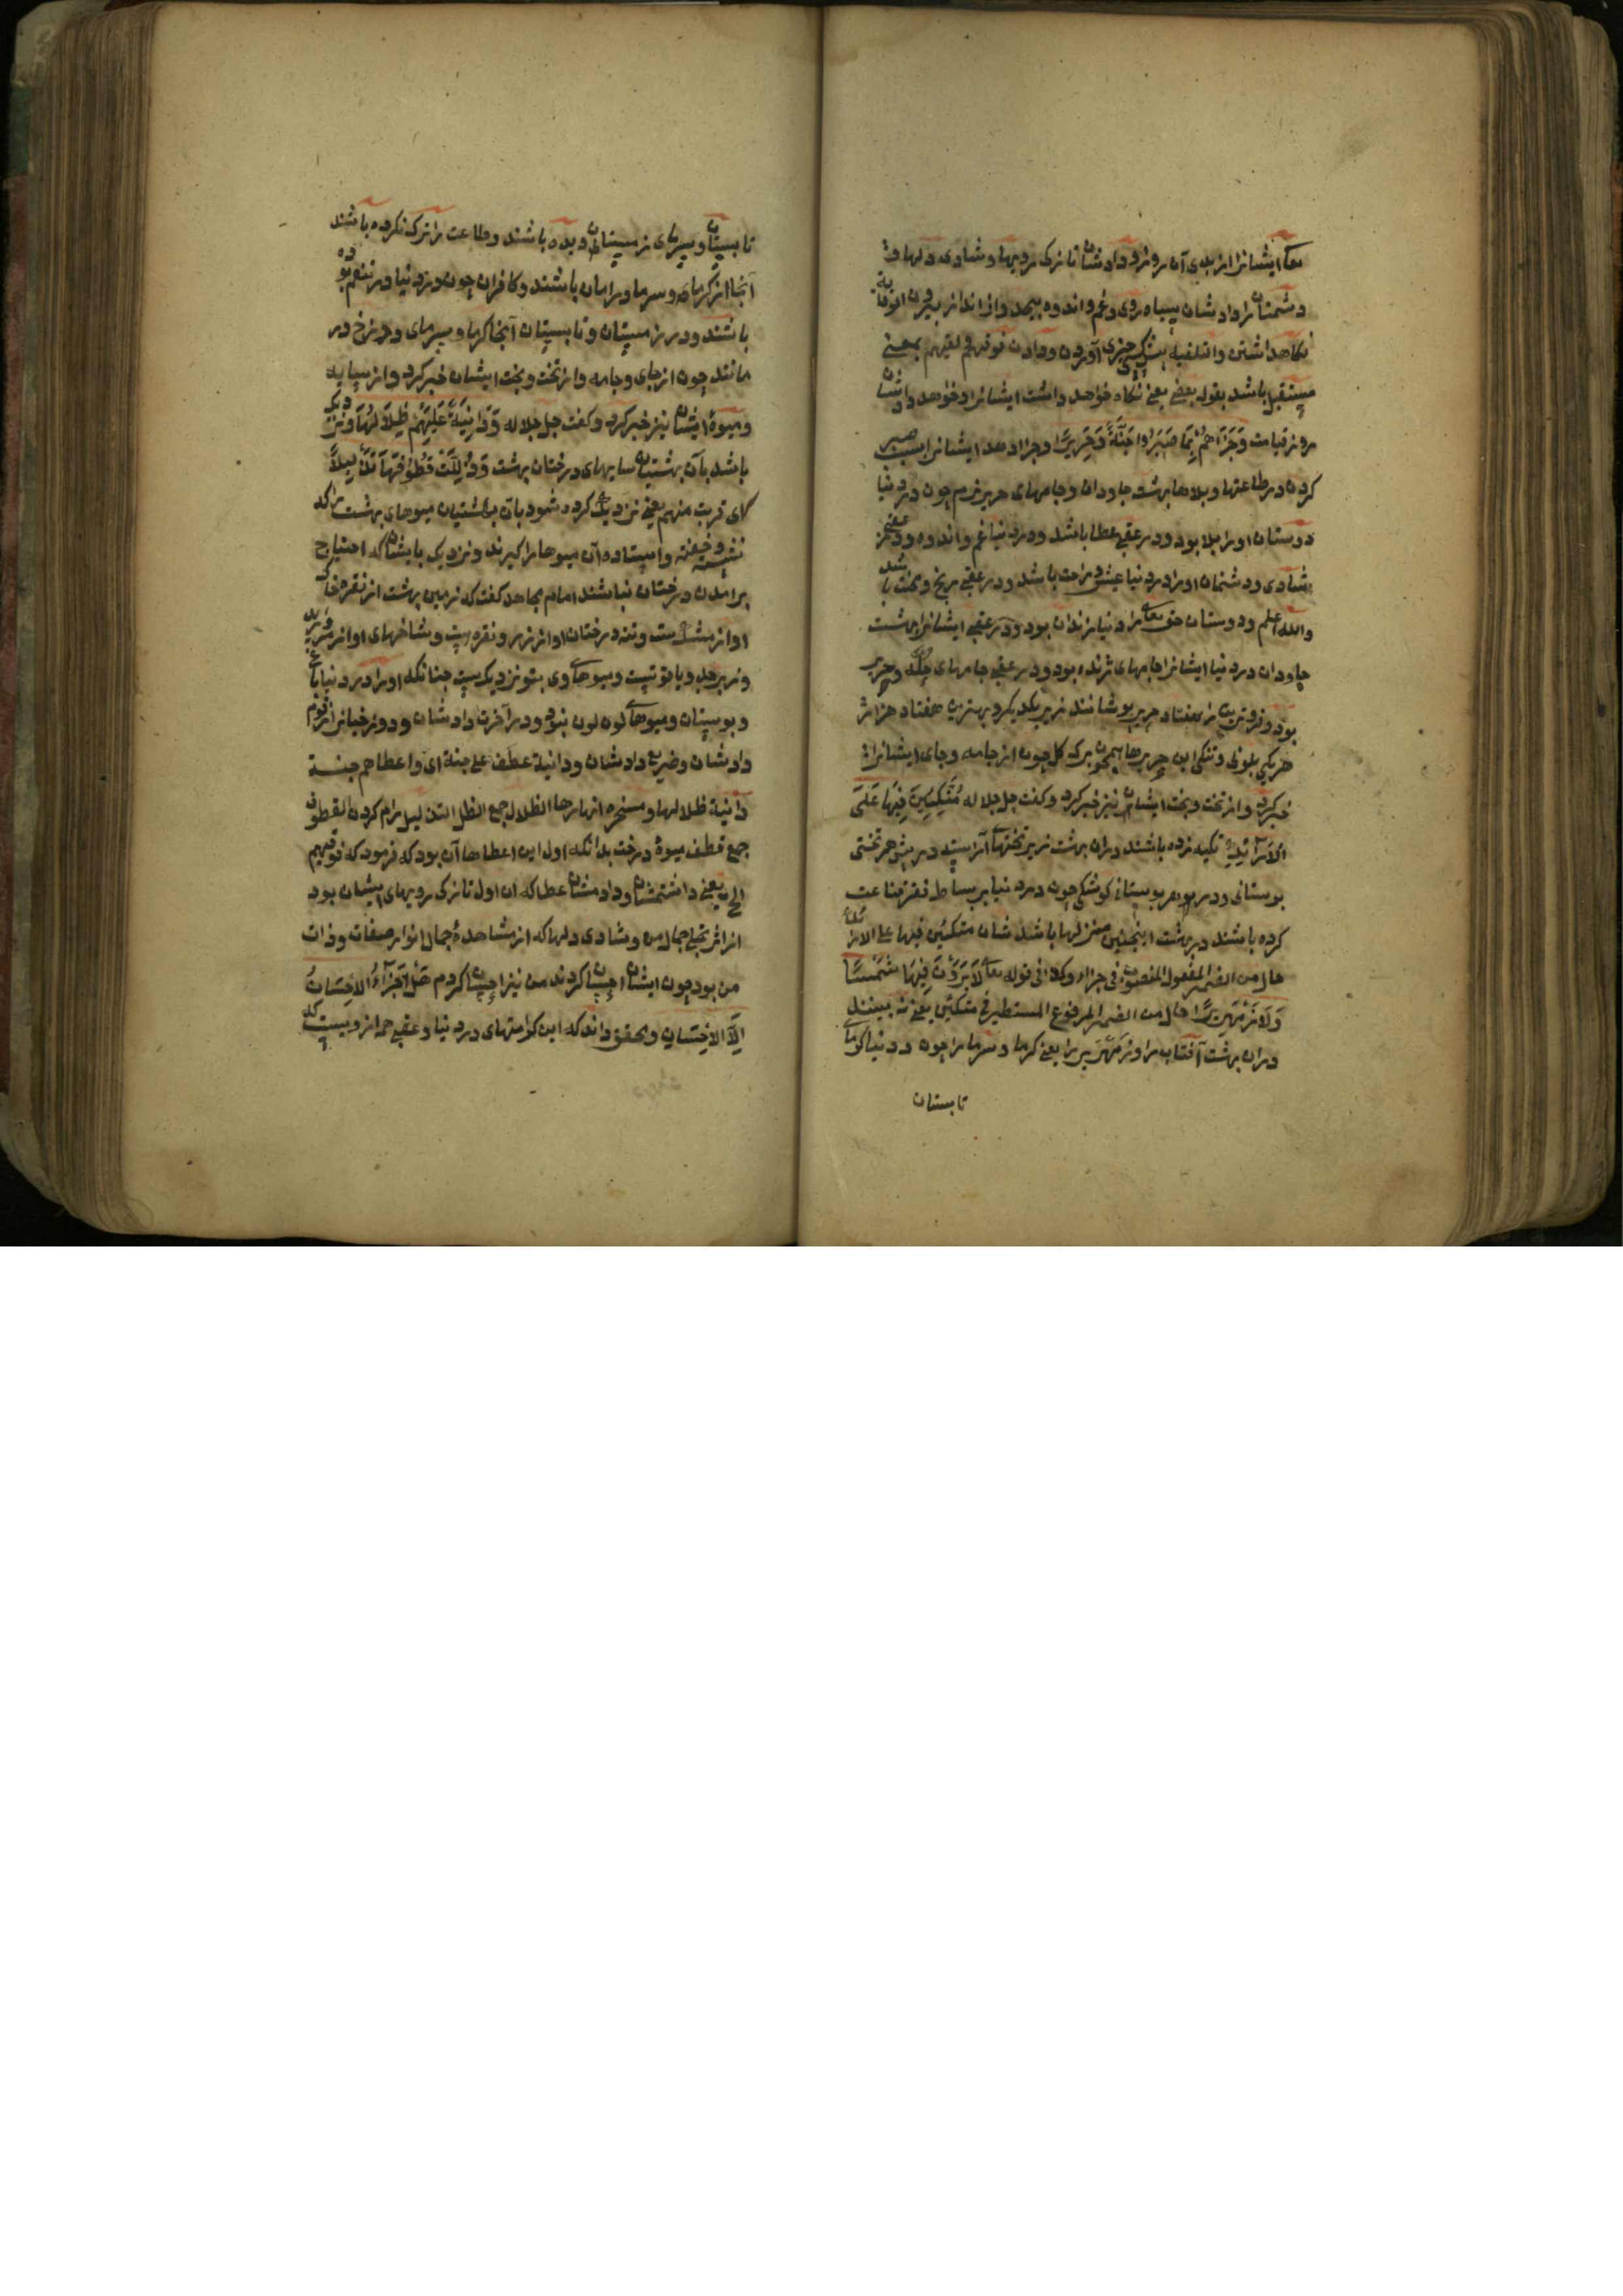 تعالی ایشانرا از بدی آن روز و دادشان تازکی رویها و شادی دلها و
دشمنانرا دادشان سیاه روی و غم و اندوه بیحد و از اندازه بیرون الوقایة
نکاهداشتن والتلقیة پیش کسی چیزی آوردن و دادن فوقیهم و لقیهم بمعنی
مستقبل باشد بقول بعضی یعنی نکاه خواهد داشت ایشانرا و خواهد دادشان
روز قیامت وَجَزَاهُمْ بِمَا صَبَرُوا جَنَّةً وَحَرِيرًا و جزا دهد ایشانرا بسبب صبر
کردن در طاعتها و بلاها بهشت جاودان و جامهای حریر نرم چون در دنیا
دوستان اورا بلا بود و در عقبی عطا باشد و در دنیا غم و اندوه و در عقبی
شادی و دشمنان اورا در دنیا عیش و راحت باشد و در عقبی رنج و محنت باشد
والله اعلم و دوستان حق تعالی را دنیا زندان بود و در عقبی ایشانرا بهشت
جاودان در دنیا ایشانرا جامهای ژنده بود و در عقبی جامهای حله و حریر
بود و فروترین را هفتاد حریر پوشانند زیر یکدیکر و بهترین هفتاد هزار
هر یکی بلونی و تنکی این حریرها همچون برک کل چون از جامه و جای ایشانرا
خبر کرد و از تخت و بخت ایشان نیز خبر کرد و کفت جل جلاله مُتَّكِئِينَ فِيهَا عَلَى
الْأَرَائِكِ تکیه زده باشند دران بهشت زیر تختهای آراسته در پیش هر تختی
بوستانی و در هر بوستانی کوشکی چون در دنیا بر بساط فقر قناعت
کرده باشند در بهشت اینچنین منزلها باشد شان متکئین فیها علی الارائک
حال من الضمیر المفعول المنصوب فی جزاء وکذا فی قوله تعالی لَا يَرَوْنَ فِيهَا شَمْسًا
وَلَا زَمْهَرِيرًا حال من الضمیر المرفوع المستطیر فی متکئین یعنی نه بینند
دران بهشت آفتاب را و زمهریر را یعنی کرما و سرما را چون در دنیا کرمای
تابستان
تابستان و سرمای زمستان دیده باشند و طاعت را ترک نکرده باشند
آنجا از کرمای و سرما در امان باشند و کافران چون در دنیا در تنعم بوده
باشند و در زمستان و تابستان آنجا کرما و سرمای دوزخ در
مانند چون از جای و جامه و از تخت و بخت ایشان خبر کرد و از سایه
و میوهٔ ایشان نیز خبر کرد و کفت جل جلاله وَدَانِيَةً عَلَيْهِمْ ظِلَالُهَا و نزدیک
باشد بآن بهشتیان سایهای درختان بهشت وَذُلِّلَتْ قُطُوفُهَا تَذْلِيلًا
ای قربت منهم یعنی نزدیک کرده شود بآن بهشتیان میوهای بهشت را که
نشسته و خفته و ایستاده آن میوها را کیرند و نزدیک بایشان که احتیاج
برآمدن درختان نباشند امام مجاهد کفت که زمین بهشت از نقره خاک
او از مشک است و تنه درختان او از زر و نقره است و شاخهای او از مروارید
و زبرجد و یاقوتست و میوهای وی بتو نزدیک ست چنانکه اورا در دنیا باغ
و بوستان و میوهای لون لون نبود و در آخرت دادشان و دوزخیانرا زقوم
دادشان و ضریع دادشان ودانیة عطف علی جنة ای واعطاهم جنة
دانیة ظلالها ومسخرة انهارها الظلال جمع الظل التذلیل رام کردن القطوف
جمع قطف میوهٔ درخت بدانکه اول این اعطاها آن بود که فرمود که فوقیهم
الخ یعنی داشتمشان و دادمشان عطا که ان اول تازکی رویهای ایشان بود
از اثر تجلی جمال من و شادی دلها که از مشاهدهٔ جمال انوار صفات و ذات
من بود چون ایشان احسان کردند من نیز احسان کردم هَلْ جَزَاءُ الْإِحْسَانِ
إِلَّا الْإِحْسَانِ و بحقیق داند که این کرامتهای در دنیا و عقبی هم ازوییست که